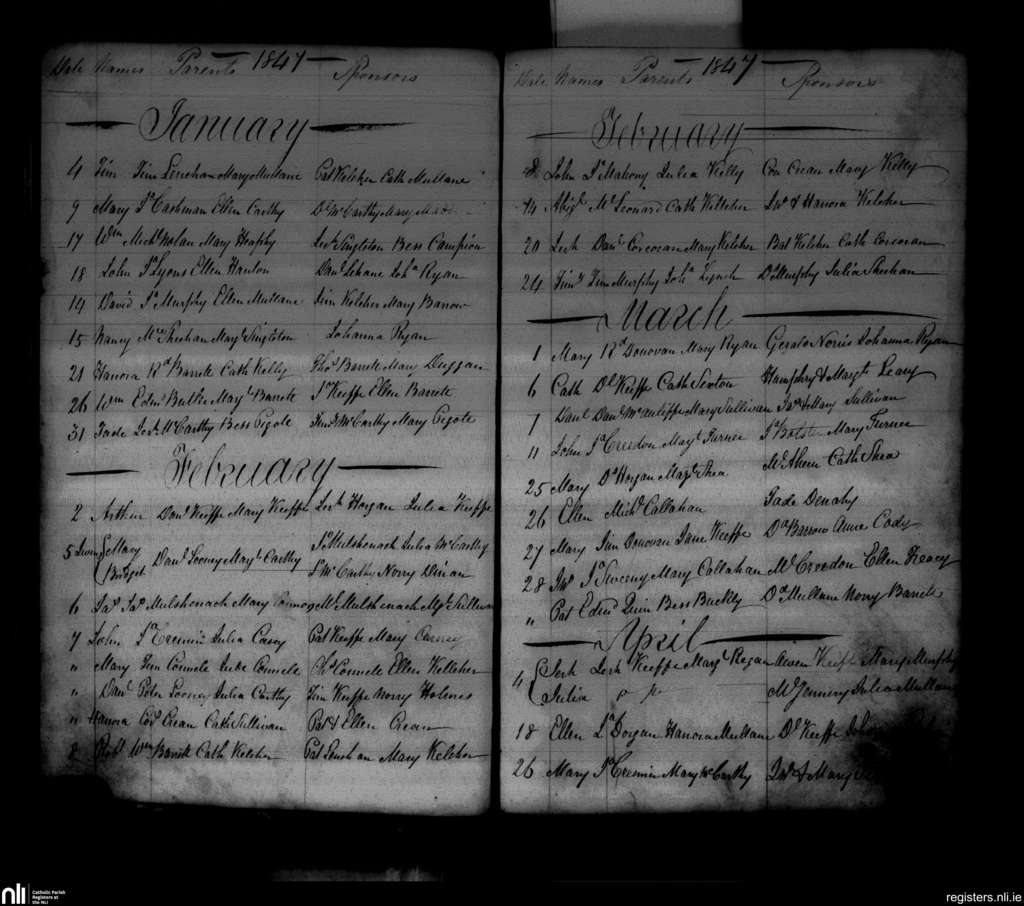 Date Names Parents 1847 Sponsors
January
4 Tim Tim Lenehan Mary Mullane Pat Kelcher Cath Mullane
9 Mary Js Cashman Ellen Carthy Ds McCarthy Mary
17 Wm Michl Nolan Mary Heaphy Jerh Singleton Bess Campion
18 John Js Lyons Ellen Hanlon Danl Lehane Joha Ryan
14 David Js Murphy Ellen Mullane Tim Kelcher Mary Barrow
15 Nancy Mce Sheehan Mayt Singleton Johanna Ryan
21 Hanora Rd Barrett Cath Kelly Thos Barrett Mary Duggan
26 Wm Edmd Butler Mayt Barrett Js Keiffe Ellen Barrett
31 Tade Jerh McCarthy Bess Pigote McCarthy Mary Pigote
February
2 Arthur Danl Keiffe Mary Keiffe Jerh Horgan Julia Keiffe
5 Mary Danl Looney Mayt Carthy Js Mulshenach Julia McCarthy
Bridget Js McCarthy Norry Dinan
6 Jas Jas Mulshenach Mary Connor Ml Mulshenach Mgt Sullivan
7 John Js Cremin Julia Casey Pat Keiffe Mary Carney
" Mary Tim Connele Jude Connele Chs Connele Ellen Kelleher
" Danl Peter Looney Julia Carthy Tim Keiffe Norry Holmes
" Hanora Cors Crean Cath Sullivan Pat & Ellen Crean
8 Robt Wm Barrett Cath Kelcher Pat Mary Kelcher
Date Names Parents 1847 Sponsors
February
8 John Js Mahony Julia Kelly Con Crean Mary Kelly
14 Abigl Ml Leonard Cath Kelleher Jno & Hanora Kelcher
20 Jerh Danl Corcoran Mary Kelcher Bat Kelcher Cath Corcoran
24 Timy Tim Murphy Joha Lynch Ds Murphy Julia Sheehan
March
1 Mary Rd Donovan Mary Ryan Gerald Norris Johanna Ryan
6 Cath Dl Keiffe Cath Sexton Humphry & Margt Leary
7 Danl Danl McAuliffe Mary Sullivan Jas & Mary Sullivan
11 John Js Creedon Mayt Turner Js Bolster Mary Turner
25 Mary Ds Horgan Magt Shea Ml Ahern Cath Shea
26 Ellen Michl Callahan Tade Denahy
27 Mary Tim Donovan Jane Keeffe Ds Barrow Anne Cody
28 Jno Js Sweeny Mary Callahan Ml Creedon Ellen Reacy
" Pat Edmd Quin Bess Buckly Ds Mullane Nory Barrett
April
4 Jerh Jerh Keeffe Margt Regan Owen Keiffe Mary Murphy
Julia Ml Jennery Julia Mullane
18 Ellen Ls Dorgan Hanora Mullane Ds Keiffe
26 Mary Js Cremin Mary McCarthy Jno & Mary
nli Catholic Parish Registers at the NLI
registers.nli.ie